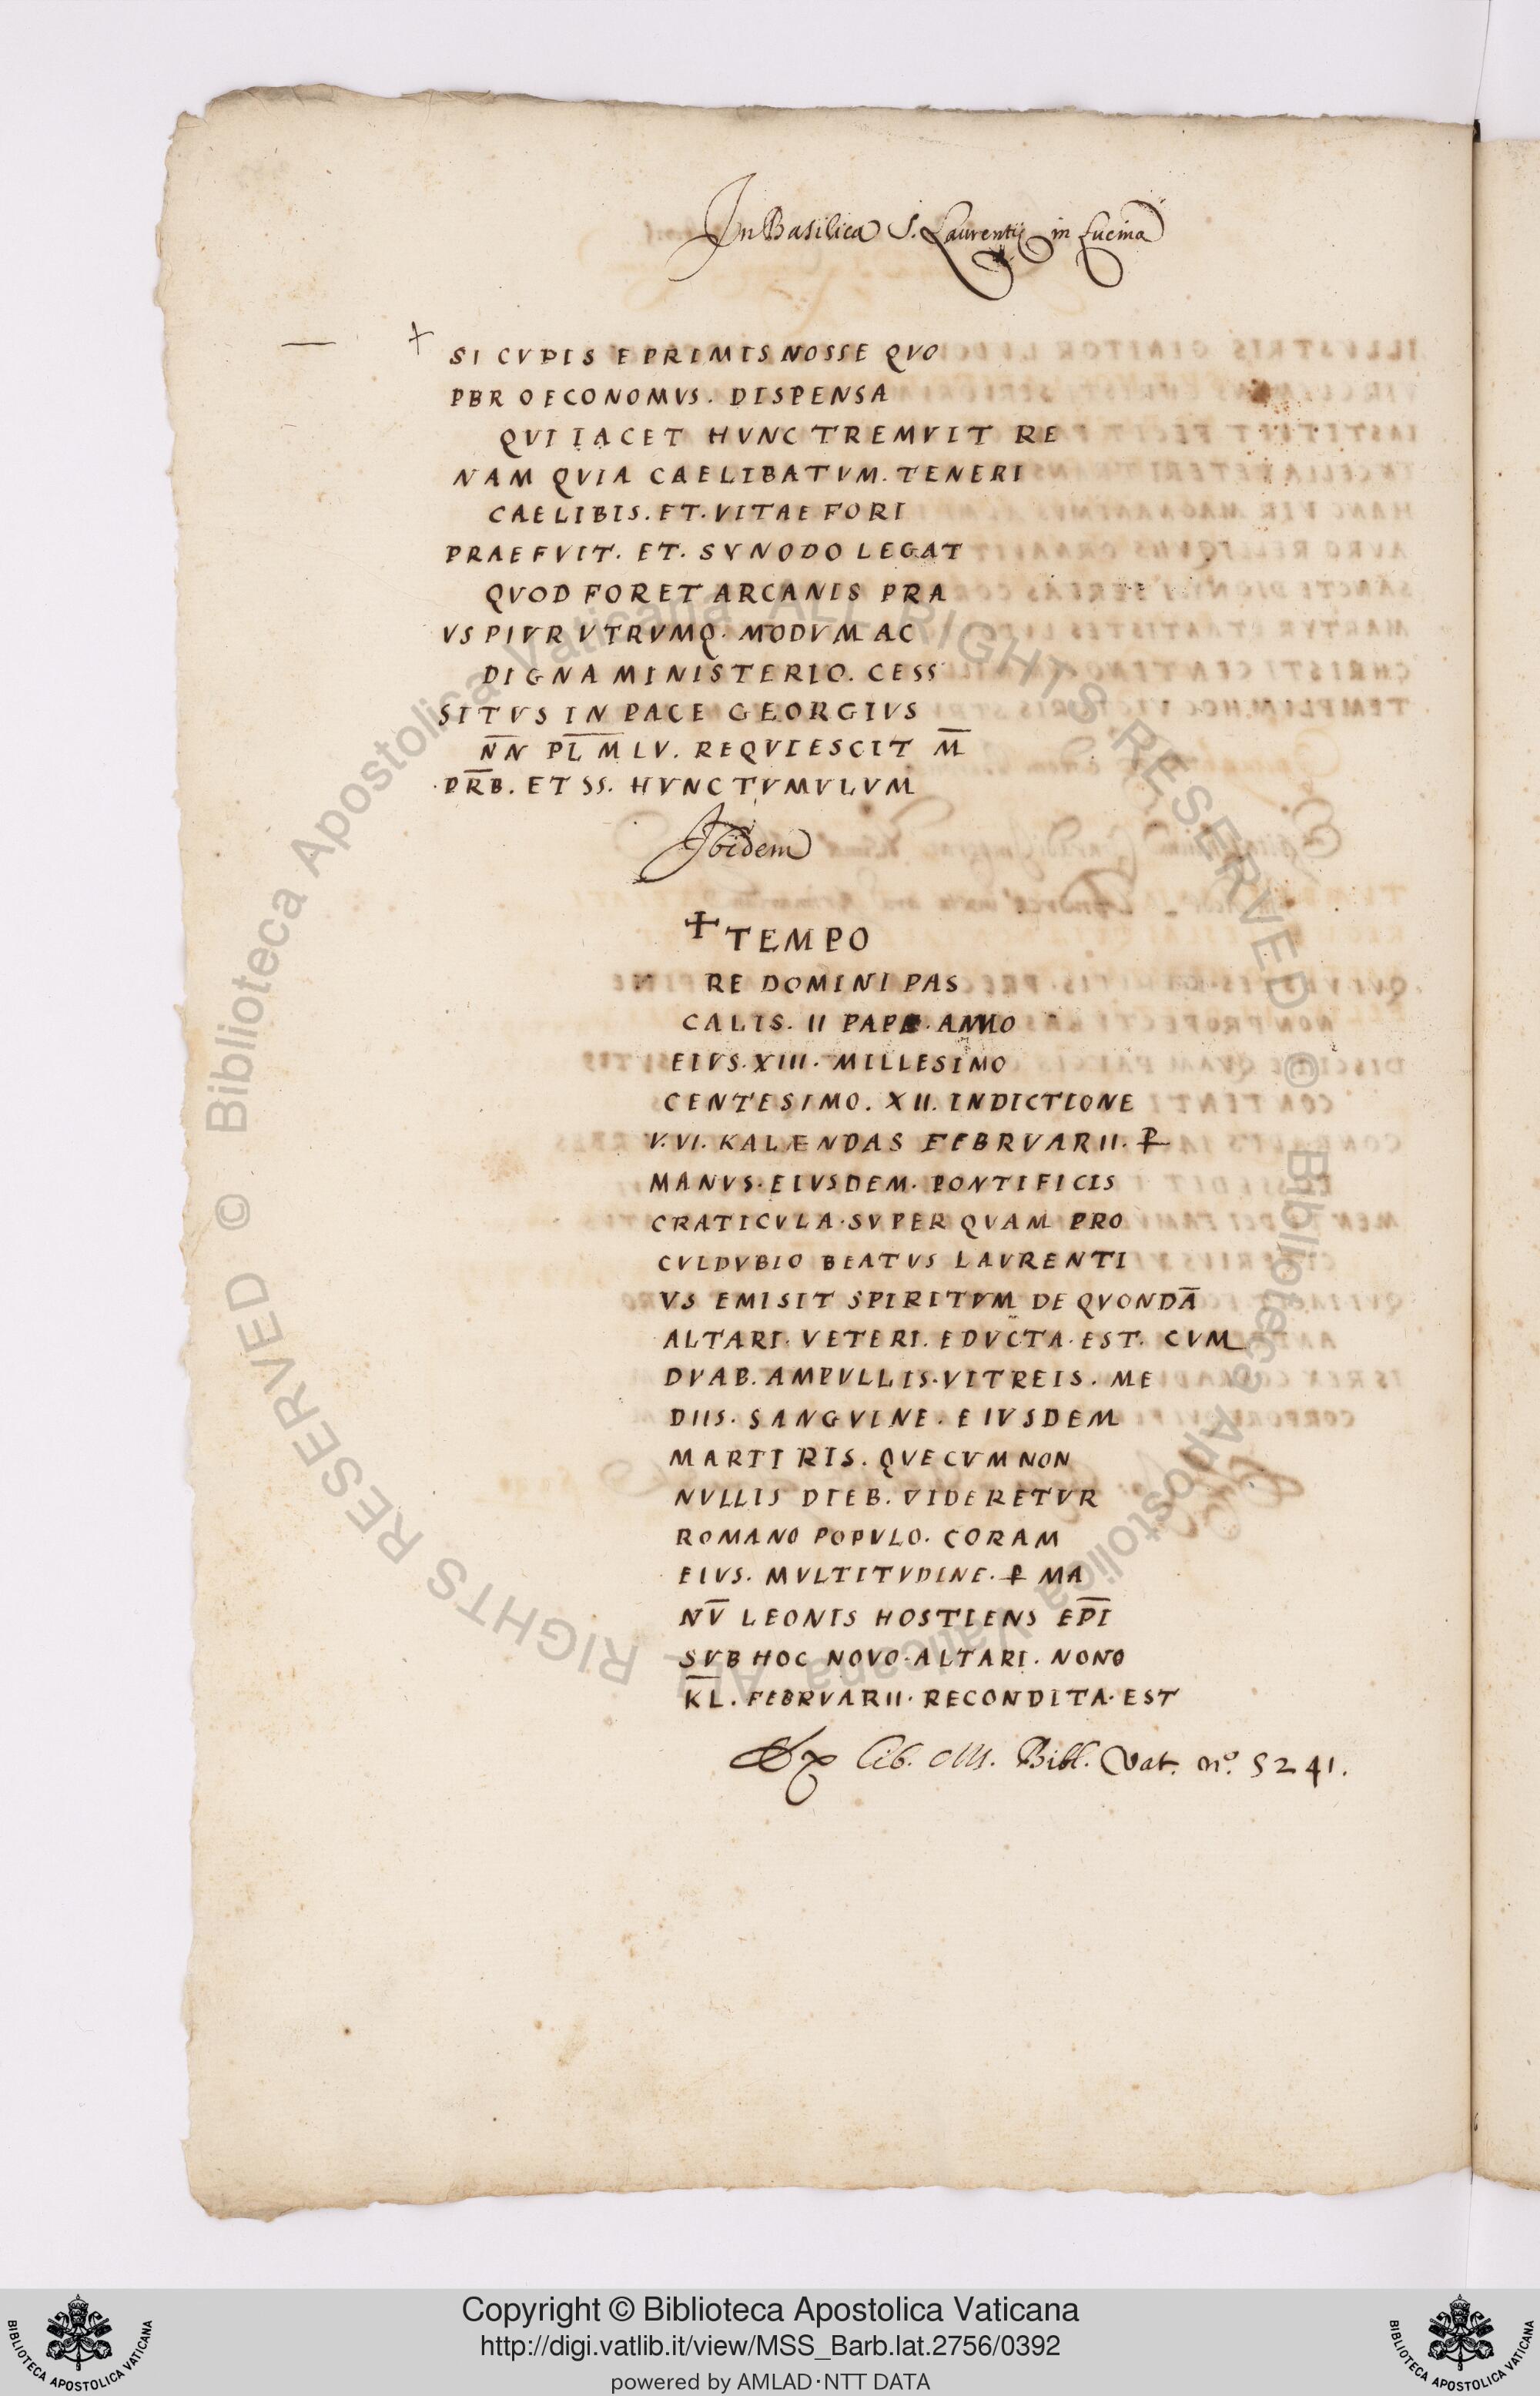 In Basilica S. Laurentij in Lucina
+ SI CVPIS E PRIMIS NOSSE QVO
PBR OECONOMVS. DISPENSA
QVI IACET HVNC TREMVIT RE
NAM QVIA CAELIBATVM. TENERI
CAELIBIS. ET. VITAE FORI
PRAEFVIT. ET. SYNODO LEGAT
QVOD FORET ARCANIS PRA
VS PIVR VTRVMQ. MODVM AC
DIGNA MINISTERIO. CESS
SITVS IN PACE GEORGIVS
N̅N PL̅ M̅ LV. REQVIESCIT M̅
PR̅B. ET SS. HVNC TVMVLVM
Ibidem
+ TEMPO
RE DOMINI PAS
CALIS. II PAPE. ANNO
EIVS. XIII. MILLESIMO
CENTESIMO. XII. INDICTIONE
V. VI. KALENDAS FEBRVARII. ꝑ
MANVS. EIVSDEM. PONTIFICIS
CRATICVLA. SVPER QVAM PRO
CVLDVBIO BEATVS LAVRENTI
VS EMISIT SPIRITVM DE QVONDA̅
ALTARI. VETERI. EDVCTA. EST. CVM
DVAB. AMPVLLIS. VITREIS. ME
DIIS. SANGVINE. EIVSDEM
MARTIRIS. QVE CVM NON
NVLLIS DIEB. VIDERETVR
ROMANO POPVLO. CORAM
EIVS. MVLTITVDINE. ꝑ MA
NV̅ LEONIS HOSTIENS EP̅I
SVB HOC NOVO. ALTARI. NONO
K̅L̅. FEBRVARII. RECONDITA. EST
Ex lib. MS. Bibl. Vat. n.º 5241.
Copyright © Biblioteca Apostolica Vaticana
http://digi.vatlib.it/view/MSS_Barb.lat.2756/0392
powered by AMLAD·NTT DATA
BIBLIOTECA APOSTOLICA VATICANA
BIBLIOTECA APOSTOLICA VATICANA
© Biblioteca Apostolica Vaticana ALL RIGHTS RESERVED © Biblioteca Apostolica Vaticana ALL RIGHTS RESERVED